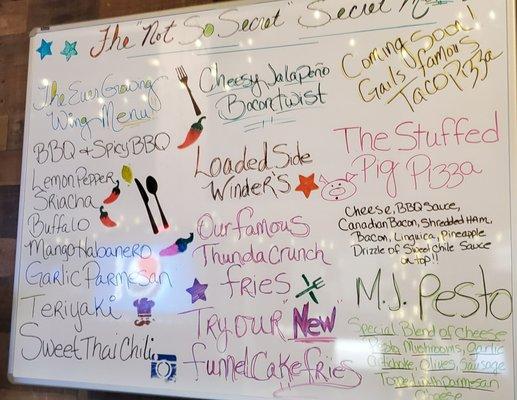 The "Not So Secret" Secret
The Ever Growing
Wing Menu
BBQ & Spicy BBQ
Lemon Pepper
Sriacha
Buffalo
Mango Habanero
Garlic Parmesan
Teriyaki
Sweet Thai Chili
Cheesy Jalapeño
Bacon Twist
Loaded Side
Winder's
Our famous
Thunda Crunch
fries
Try our "New"
funnel Cake fries
Coming Soon!
Gail's famous
Taco Pizza
The Stuffed
Pig Pizza
Cheese, BBQ Sauce,
Canadian Bacon, Shredded Ham,
Bacon, Linguica, Pineapple
Drizzle of Sweet Chile Sauce
on top!!
M.J. Pesto
Special Blend of Cheese
Pesto, Mushrooms, Garlic
Artichoke, Olives, Sausage
Topped with Parmesan
Cheese